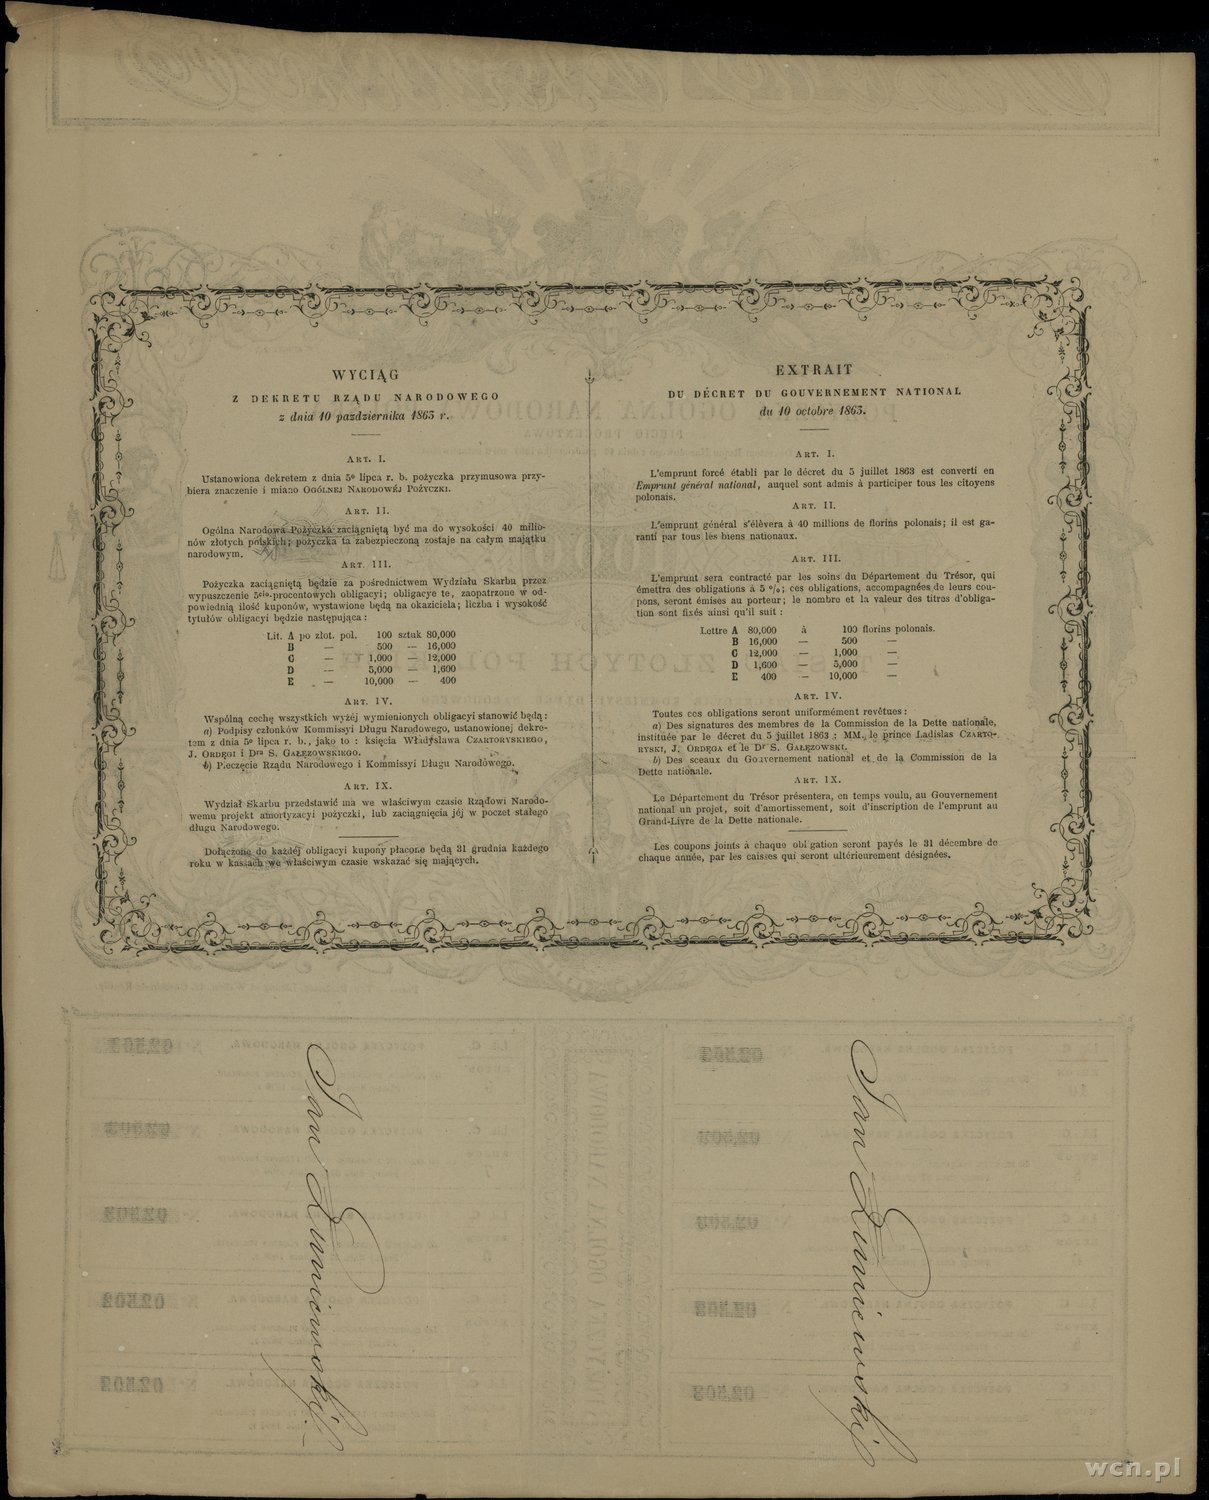 WYCIĄG
Z DEKRETU RZĄDU NARODOWEGO
z dnia 10 października 1863 r.
ART. I.
Ustanowiona dekretem z dnia 5º lipca r. b. pożyczka przymusowa przy-
biera znaczenie i miano OGÓLNEJ NARODOWÉJ POŻYCZKI.
ART. II.
Ogólna Narodowa Pożyczka zaciągniętą być ma do wysokości 40 milio-
nów złotych polskich; pożyczka ta zabezpieczoną zostaje na całym majątku
narodowym.
ART. III.
Pożyczka zaciągniętą będzie za pośrednictwem Wydziału Skarbu przez
wypuszczenie 5cio-procentowych obligacyi; obligacye te, zaopatrzone w od-
powiednią ilość kuponów, wystawione będą na okaziciela; liczba i wysokość
tytułów obligacyi będzie następująca :
Lit. A po złot. pol. 100 sztuk 80,000
B — 500 — 16,000
C — 1,000 — 12,000
D — 5,000 — 1,600
E — 10,000 — 400
ART. IV.
Wspólną cechę wszystkich wyżéj wymienionych obligacyi stanowić będą :
a) Podpisy członków Kommissyi Długu Narodowego, ustanowionej dekre-
tem z dnia 5º lipca r. b., jako to : księcia Władysława CZARTORYSKIEGO,
J. ORDĘGI i Dra S. GAŁĘZOWSKIEGO.
b) Pieczęcie Rządu Narodowego i Kommissyi Długu Narodowego.
ART. IX.
Wydział Skarbu przedstawić ma we właściwym czasie Rządowi Narodo-
wemu projekt amortyzacyi pożyczki, lub zaciągnięcia jéj w poczet stałego
długu Narodowego.
Dołączone do każdéj obligacyi kupony płacone będą 31 grudnia każdego
roku w kasach we właściwym czasie wskazać się mających.
EXTRAIT
DU DÉCRET DU GOUVERNEMENT NATIONAL
du 10 octobre 1863.
ART. I.
L'emprunt forcé établi par le décret du 5 juillet 1863 est converti en
Emprunt général national, auquel sont admis à participer tous les citoyens
polonais.
ART. II.
L'emprunt général s'élèvera à 40 millions de florins polonais; il est ga-
ranti par tous les biens nationaux.
ART. III.
L'emprunt sera contracté par les soins du Département du Trésor, qui
émettra des obligations à 5 %; ces obligations, accompagnées de leurs cou-
pons, seront émises au porteur; le nombre et la valeur des titres d'obliga-
tion sont fixés ainsi qu'il suit :
Lettre A 80,000 à 100 florins polonais.
B 16,000 — 500 —
C 12,000 — 1,000 —
D 1,600 — 5,000 —
E 400 — 10,000 —
ART. IV.
Toutes ces obligations seront uniformément revêtues :
a) Des signatures des membres de la Commission de la Dette nationale,
instituée par le décret du 5 juillet 1863 : MM. le prince Ladislas CZARTO-
RYSKI, J. ORDĘGA et le Dr S. GAŁĘZOWSKI.
b) Des sceaux du Gouvernement national et de la Commission de la
Dette nationale.
ART. IX.
Le Département du Trésor présentera, en temps voulu, au Gouvernement
national un projet, soit d'amortissement, soit d'inscription de l'emprunt au
Grand-Livre de la Dette nationale.
Les coupons joints à chaque obligation seront payés le 31 décembre de
chaque année, par les caisses qui seront ultérieurement désignées.
Jan
Jan
wcn.pl